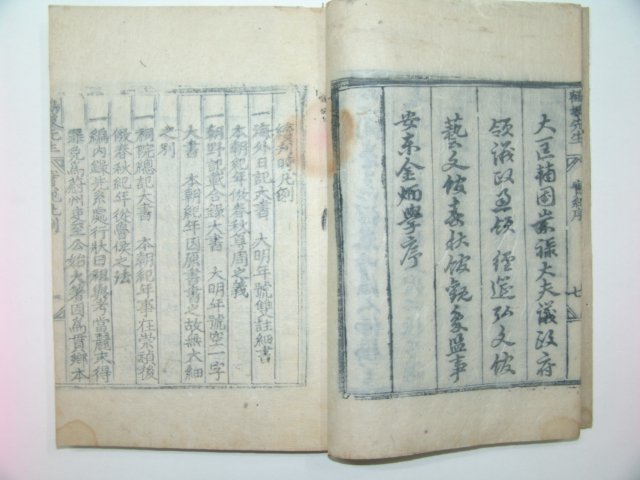 大匡輔國崇祿大夫議政府
領議政兼領 經筵弘文館
藝文館春秋館觀象監事
安東金炳學序
續刊時凡例
一海外日記大書 大明年號雙註細書
本朝紀年倣春秋尊周之義
一朝野記載合錄大書 大明年號空一字
大書 本朝紀年因原書書之故無大細
之別
一桐院總記大書 本朝紀年事在崇禎後
倣春秋紀年從魯便之法
一編內錄先系處行狀日